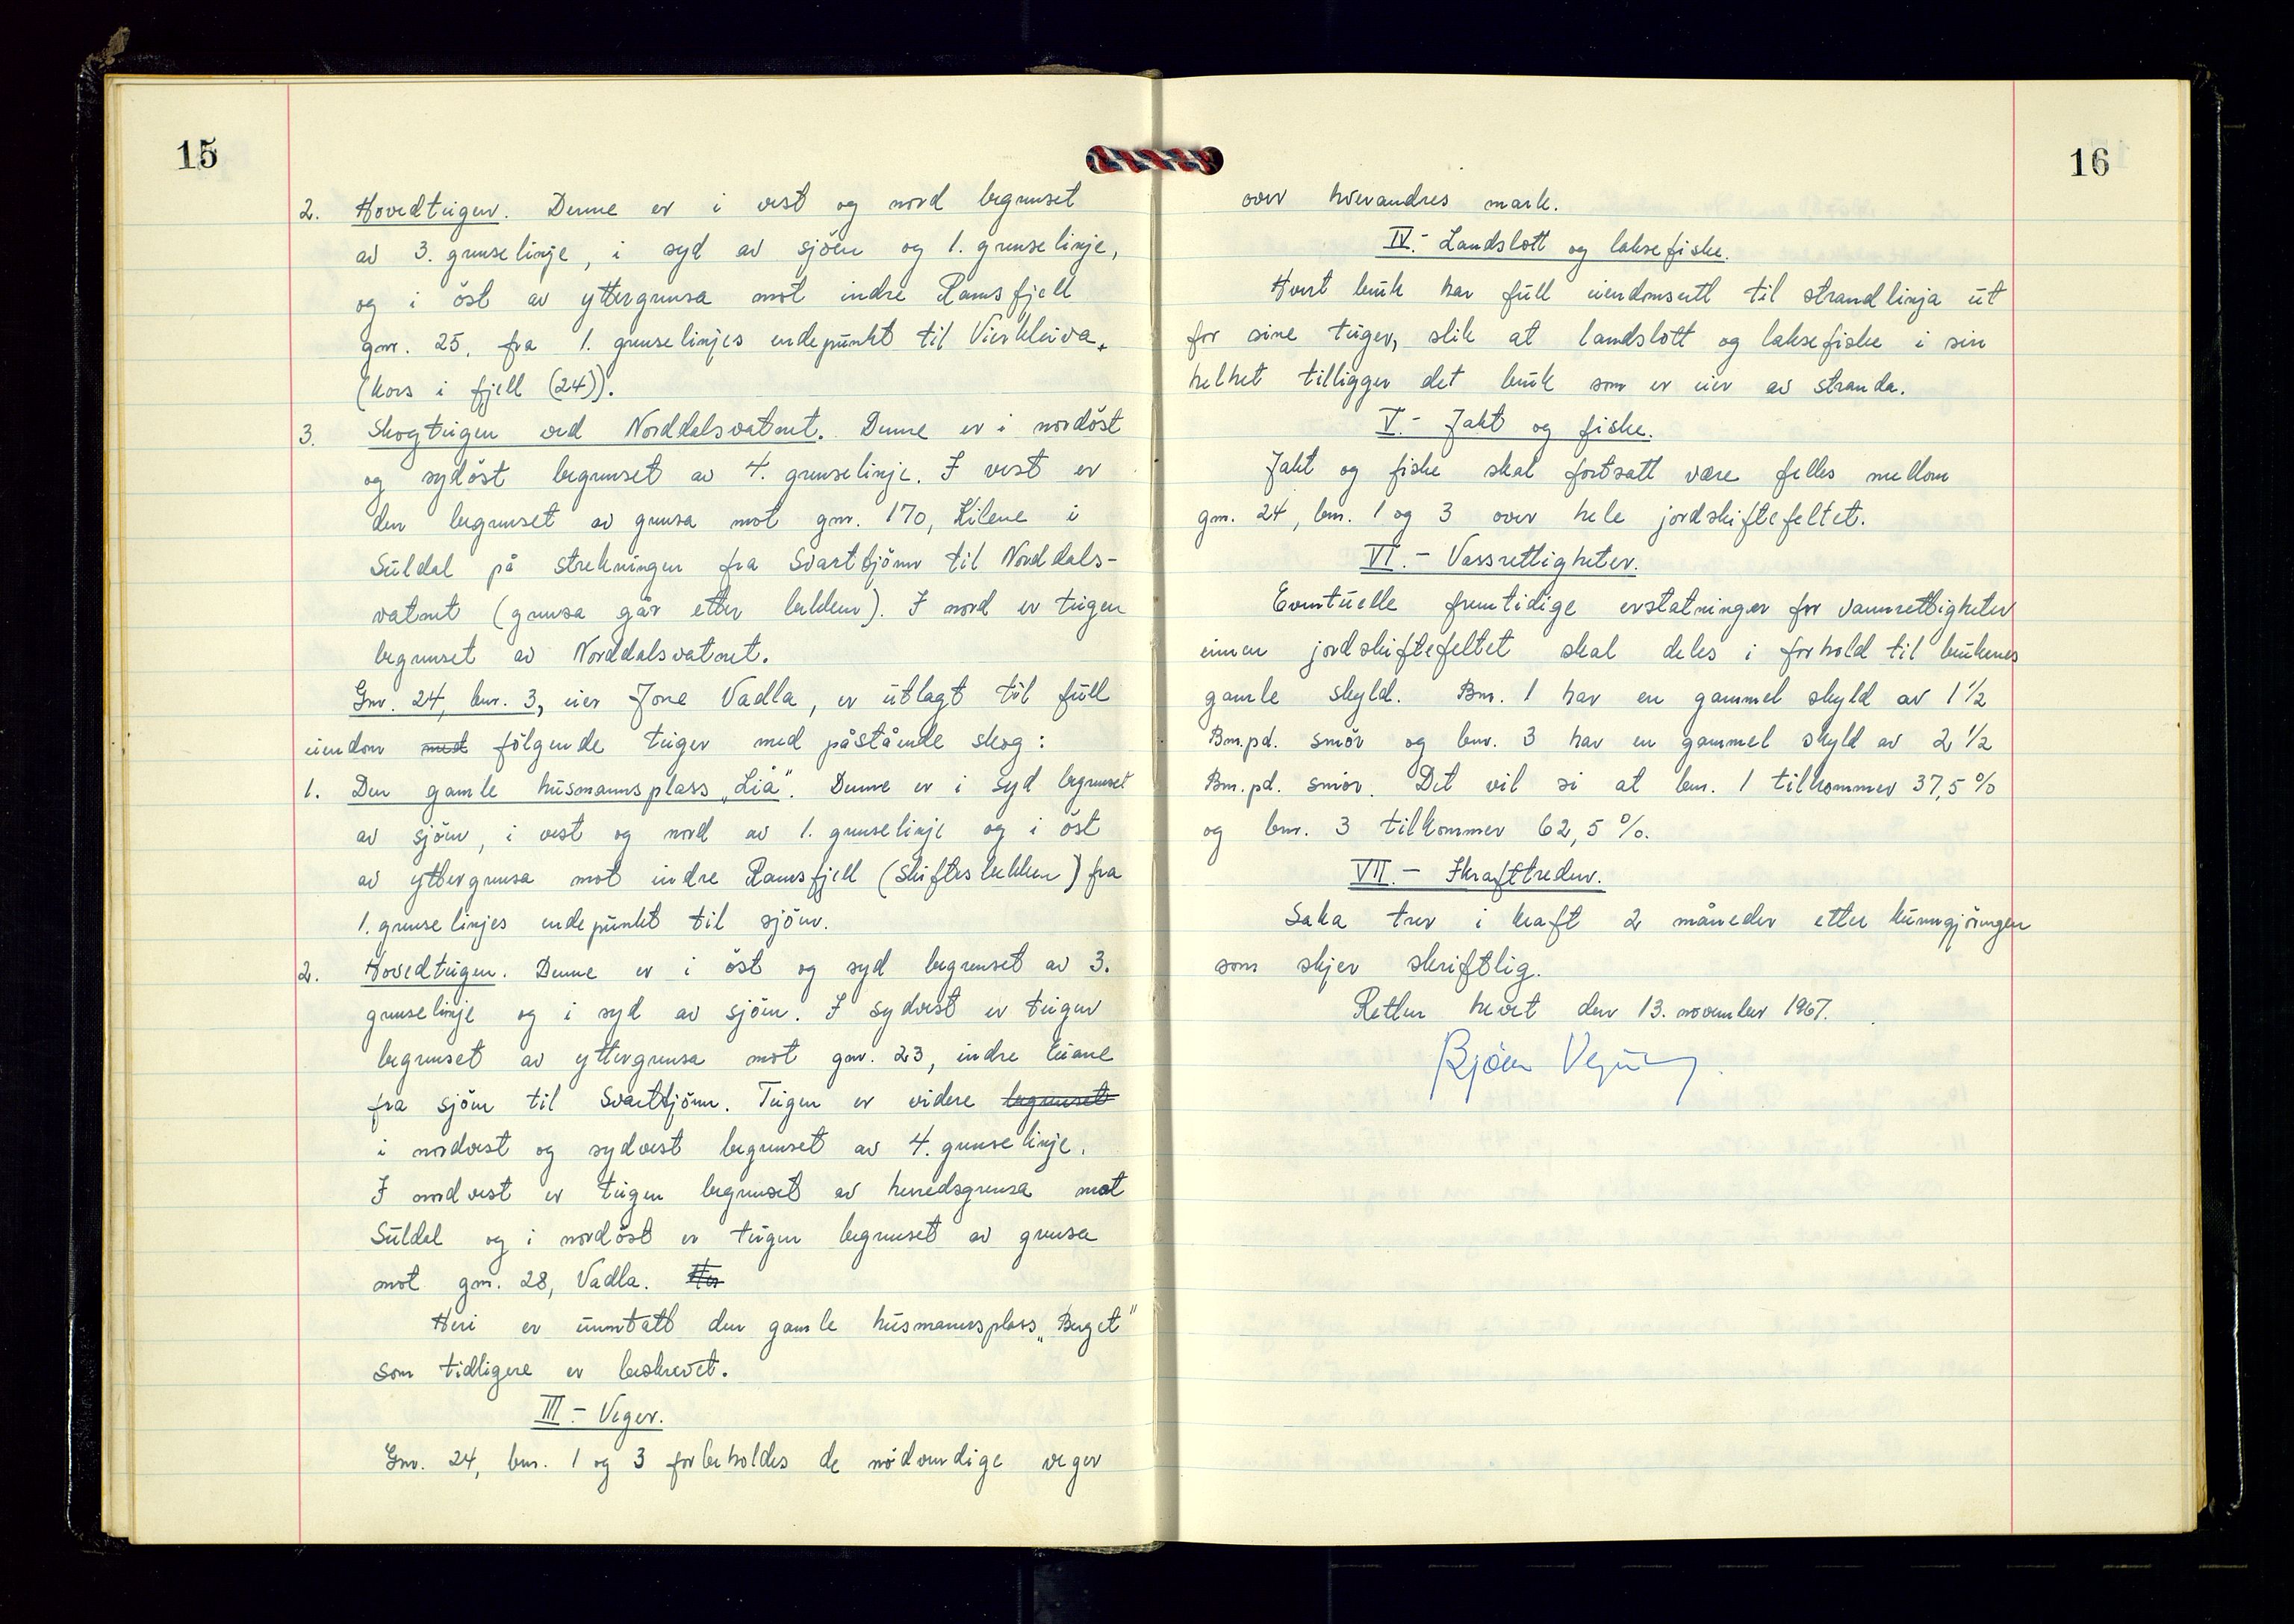 15
2. Hovedteigen. Denne er i vest og nord begrenset
av 3. grenselinje, i syd av sjöen og 1. grenselinje,
og i öst av yttergrensa mot indre Ramsfjell
gnr. 25, fra 1. grenselinjes endepunkt til Vierkleiva.
(kors i fjell (24)).
3. Skogteigen ved Norddalsvatnet. Denne er i nordöst
og sydöst begrenset av 4. grenselinje. I vest er
den begrenset av grensa mot gnr. 170, Kilene i
Suldal på strekningen fra Svarttjönn til Norddals-
vatnet (grensa går etter bekken). I nord er teigen
begrenset av Norddalsvatnet.
Gnr. 24, bnr. 3, eier Jone Vadla, er utlagt til full
eiendom med fölgende teiger med påstående skog:
1. Den gamle husmannsplass „Liå". Denne er i syd begrenset
av sjöen, i vest og nord av 1. grenselinje og i öst
av yttergrensa mot indre Ramsfjell (skiftesbekken) fra
1. grenselinjes endepunkt til sjöen.
2. Hovedteigen. Denne er i öst og syd begrenset av 3.
grenselinje og i syd av sjöen. I sydvest er teigen
begrenset av yttergrensa mot gnr. 23, indre
fra sjöen til Svarttjönn. Teigen er videre begrenset
i nordvest og sydvest begrenset av 4. grenselinje.
I nordvest er teigen begrenset av herredsgrensa mot
Suldal og i nordöst er teigen begrenset av grensa
mot gnr. 28, Vadla. Her
Heri er unntatt den gamle husmannsplass „Berget"
som tidligere er beskrevet.
III - Veger.
Gnr. 24, bnr. 1 og 3 forbeholdes de nödvendige veger
16
over hverandres mark.
IV. - Landslott og laksefiske.
Hvert bruk har full eiendomsrett til strandlinja ut
for sine teiger, slik at landslott og laksefiske i sin
helhet tilligger det bruk som er eier av stranda.
V. - Jakt og fiske.
Jakt og fiske skal fortsatt være felles mellom
gnr. 24, bnr. 1 og 3 over hele jordskiftefeltet.
VI. - Vassrettigheter.
Eventuelle fremtidige erstatninger for vannrettigheter
innen jordskiftefeltet skal deles i forhold til brukenes
gamle skyld. Bnr. 1 har en gammel skyld av 1 1/2
Bm.pd. smör og bnr. 3 har en gammel skyld av 2 1/2
Bm.pd. smör. Det vil si at bnr. 1 tilkommer 37,5 %
og bnr. 3 tilkommer 62,5 %.
VII. - Ikrafttreden.
Saka trer i kraft 2 måneder etter kunngjöringen
som skjer skriftlig.
Retten hevet den 13. november 1967.
Björn